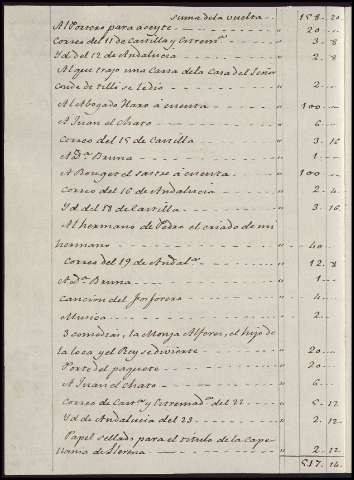 Suma de la vuelta - - " 158.. 20.
Al Portero para aceyte - - " 20 ..
Correo del 11 de Castilla y Estrem.ª " 3 .. 8
Yd. del 12 de Andalucia - - " 2 .. 8.
Al que trajo una Carta de la Casa del Señor
Conde de Tilli se le dio - - " 2 ..
Al Abogado Haro à cuenta - - " 100 ..
A Juan el Chato - - " 6 ..
Correo del 15 de Castilla - - " 3 .. 16
A D.ª Bruna - - " 1 ..
A Bouget el sastre à cuenta - - " 100 ..
Correo del 16 de Andalucia - - " 2 .. 4.
Yd del 18 de Castilla - - " 3 .. 16.
Al hermano de Pedro el criado de mi
hermano - - " 40 ..
Correo del 19 de Andal.ª - - " 12 .. 8
A D.ª Bruna - - " 1 ..
Cancion del Josforero - - " 4 ..
Musica - - " 2 ..
3 comedias, la Monja Alferez, el hijo de
la loca y el Rey se divierte - - " 20 ..
Porte del paquete - - " 20 ..
A Juan el Chato - - " 6 ..
Correo de Cast.ª y Estremad.ª del 22 - - " 5 .. 12
Yd de Andalucia del 23 - - " 2 .. 12.
Papel sellado para el titulo de la Cape
llania de Llerena - - " 2 .. 12
517. 14.